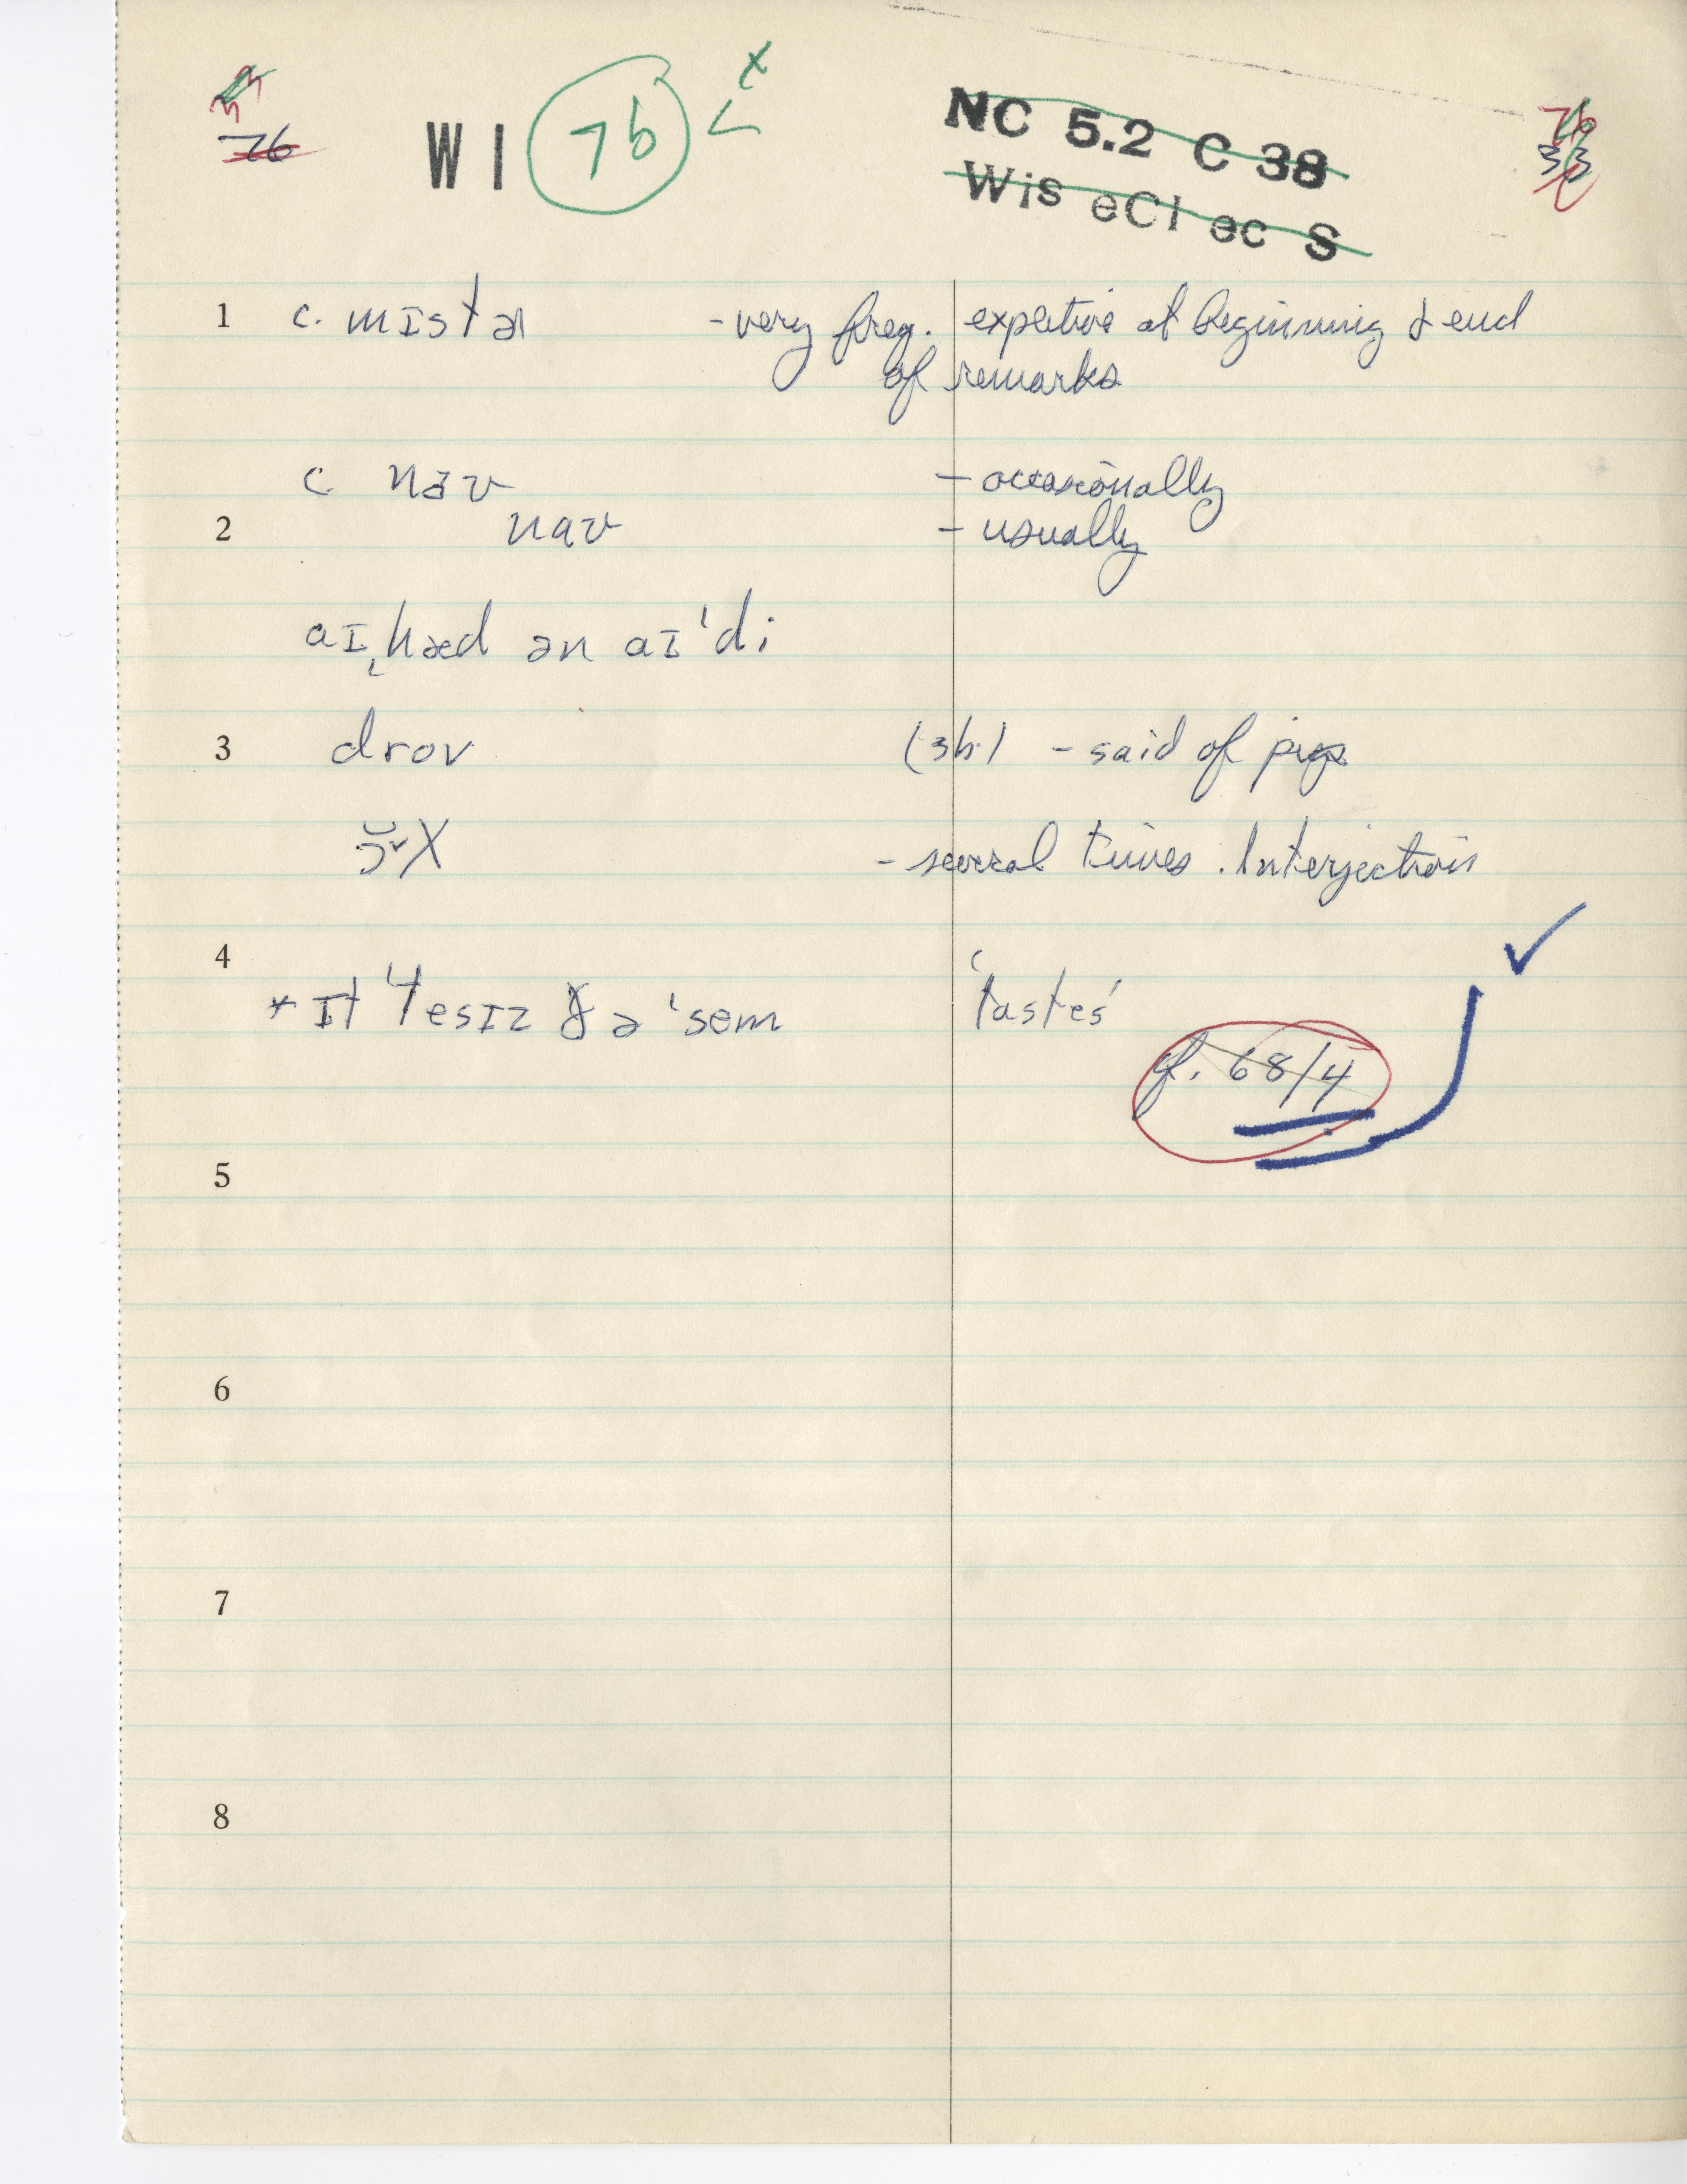 76
WI 76 < x
NC 5.2 C 38
Wis eCl ec S
76
33
1 c. mɪstəɹ - very freq. expletive at beginning & end
of remarks
c nɑ̄v - occasionally
2 nav - usually
aɪ ˌhæd ən aɪˈdi
3 drov (3b.) - said of pigs
- several times. Interjection
4
* ɪt tesɪz ðə ˈsem 'tastes'
cf. 68/4
5
6
7
8